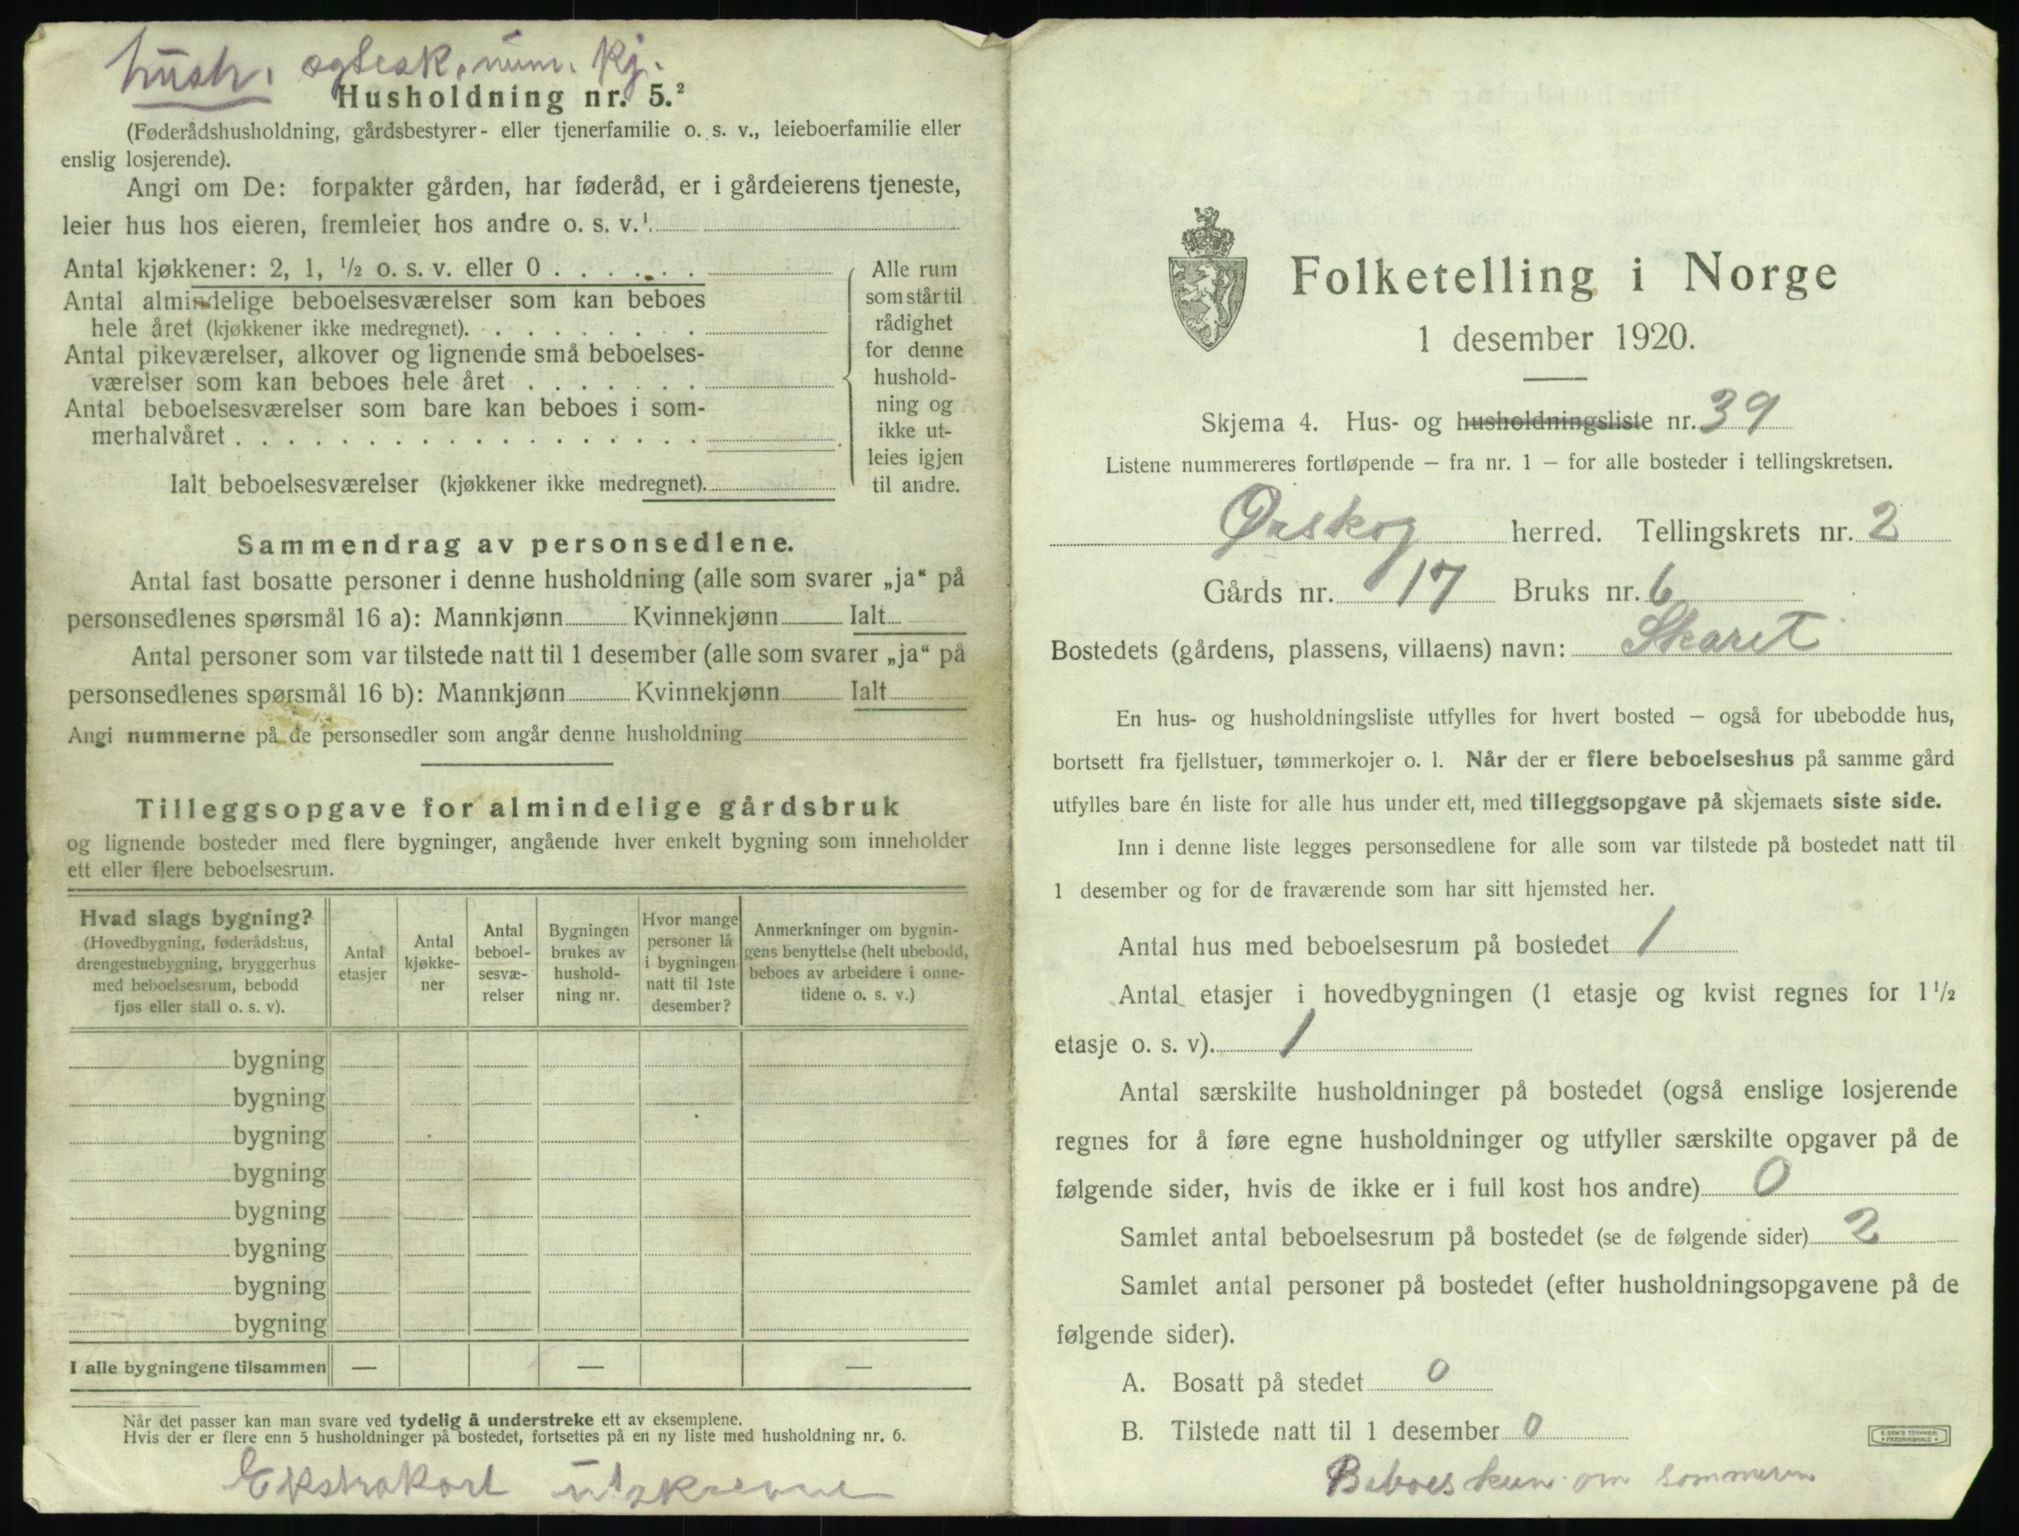 hush. ægtesk. num. kj.
Husholdning nr. 5.²
(Føderådshusholdning, gårdsbestyrer- eller tjenerfamilie o. s. v., leieboerfamilie eller
enslig losjerende).
Angi om De: forpakter gården, har føderåd, er i gårdeierens tjeneste,
leier hus hos eieren, fremleier hos andre o. s. v.¹
Antal kjøkkener: 2, 1, ½ o. s. v. eller 0 . . . . . .
Antal almindelige beboelsesværelser som kan beboes
hele året (kjøkkener ikke medregnet). . . . . . . . .
Antal pikeværelser, alkover og lignende små beboelses-
værelser som kan beboes hele året . . . . . . .
Antal beboelsesværelser som bare kan beboes i som-
merhalvåret . . . . . . . . . . . . . . . . . .
Ialt beboelsesværelser (kjøkkener ikke medregnet).
Alle rum
som står til
rådighet
for denne
hushold-
ning og
ikke ut-
leies igjen
til andre.
Sammendrag av personsedlene.
Antal fast bosatte personer i denne husholdning (alle som svarer „ja“ på
personsedlenes spørsmål 16 a): Mannkjønn Kvinnekjønn Ialt
Antal personer som var tilstede natt til 1 desember (alle som svarer „ja“ på
personsedlenes spørsmål 16 b): Mannkjønn Kvinnekjønn Ialt
Angi nummerne på de personsedler som angår denne husholdning
Tilleggsopgave for almindelige gårdsbruk
og lignende bosteder med flere bygninger, angående hver enkelt bygning som inneholder
ett eller flere beboelsesrum.
Hvad slags bygning?
(Hovedbygning, føderådshus,
drengestuebygning, bryggerhus
med beboelsesrum, bebodd
fjøs eller stall o. s. v).
Antal
etasjer
Antal
kjøkke-
ner
Antal
beboel-
sesvæ-
relser
Bygningen
brukes av
hushold-
ning nr.
Hvor mange
personer lå
i bygningen
natt til 1ste
desember?
Anmerkninger om bygnin-
gens benyttelse (helt ubebodd,
beboes av arbeidere i onne-
tidene o. s. v.)
bygning
bygning
bygning
bygning
bygning
bygning
bygning
bygning
I alle bygningene tilsammen — — —
Når det passer kan man svare ved tydelig å understreke ett av eksemplene.
Hvis der er flere enn 5 husholdninger på bostedet, fortsettes på en ny liste med husholdning nr. 6.
Ekstrakort utskrevne
Folketelling i Norge
1 desember 1920.
Skjema 4. Hus- og husholdningsliste nr. 39
Listene nummereres fortløpende – fra nr. 1 – for alle bosteder i tellingskretsen.
Ørskog herred. Tellingskrets nr. 2
Gårds nr. 17 Bruks nr. 6
Bostedets (gårdens, plassens, villaens) navn: Skaret
En hus- og husholdningsliste utfylles for hvert bosted – også for ubebodde hus,
bortsett fra fjellstuer, tømmerkojer o. l. Når der er flere beboelseshus på samme gård
utfylles bare én liste for alle hus under ett, med tilleggsopgave på skjemaets siste side.
Inn i denne liste legges personsedlene for alle som var tilstede på bostedet natt til
1 desember og for de fraværende som har sitt hjemsted her.
Antal hus med beboelsesrum på bostedet 1
Antal etasjer i hovedbygningen (1 etasje og kvist regnes for 1 ½
etasje o. s. v). 1
Antal særskilte husholdninger på bostedet (også enslige losjerende
regnes for å føre egne husholdninger og utfyller særskilte opgaver på de
følgende sider, hvis de ikke er i full kost hos andre) 0
Samlet antal beboelsesrum på bostedet (se de følgende sider) 2
Samlet antal personer på bostedet (efter husholdningsopgavene på de
følgende sider).
A. Bosatt på stedet 0
B. Tilstede natt til 1 desember 0
E. SEM'S TRYKKERI
FREDRIKSHALD
Beboes kun om sommeren